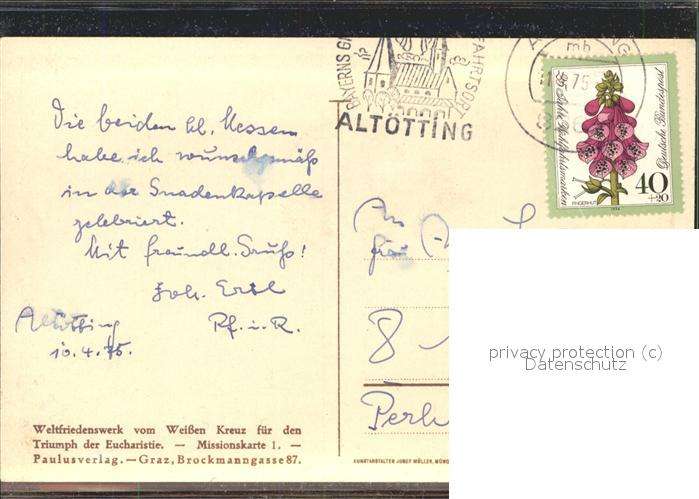 Die beiden hl. Messen
habe ich wunschgemäß
in der Gnadenkapelle
zelebriert.
Mit freundl. Gruß!
Joh. Ertl
Pf. i. R.
Altötting
10.4.75.
Weltfriedenswerk vom Weißen Kreuz für den
Triumph der Eucharistie. — Missionskarte 1. —
Paulusverlag. — Graz, Brockmanngasse 87.
BAYERNS
FAHRTSORT
ALTÖTTING
mb
75
Deutsche Bundespost
40
+20
FINGERHUT
1974
An
8
KUNSTANSTALTEN JOSEF MÜLLER, MÜN
privacy protection (c)
Datenschutz